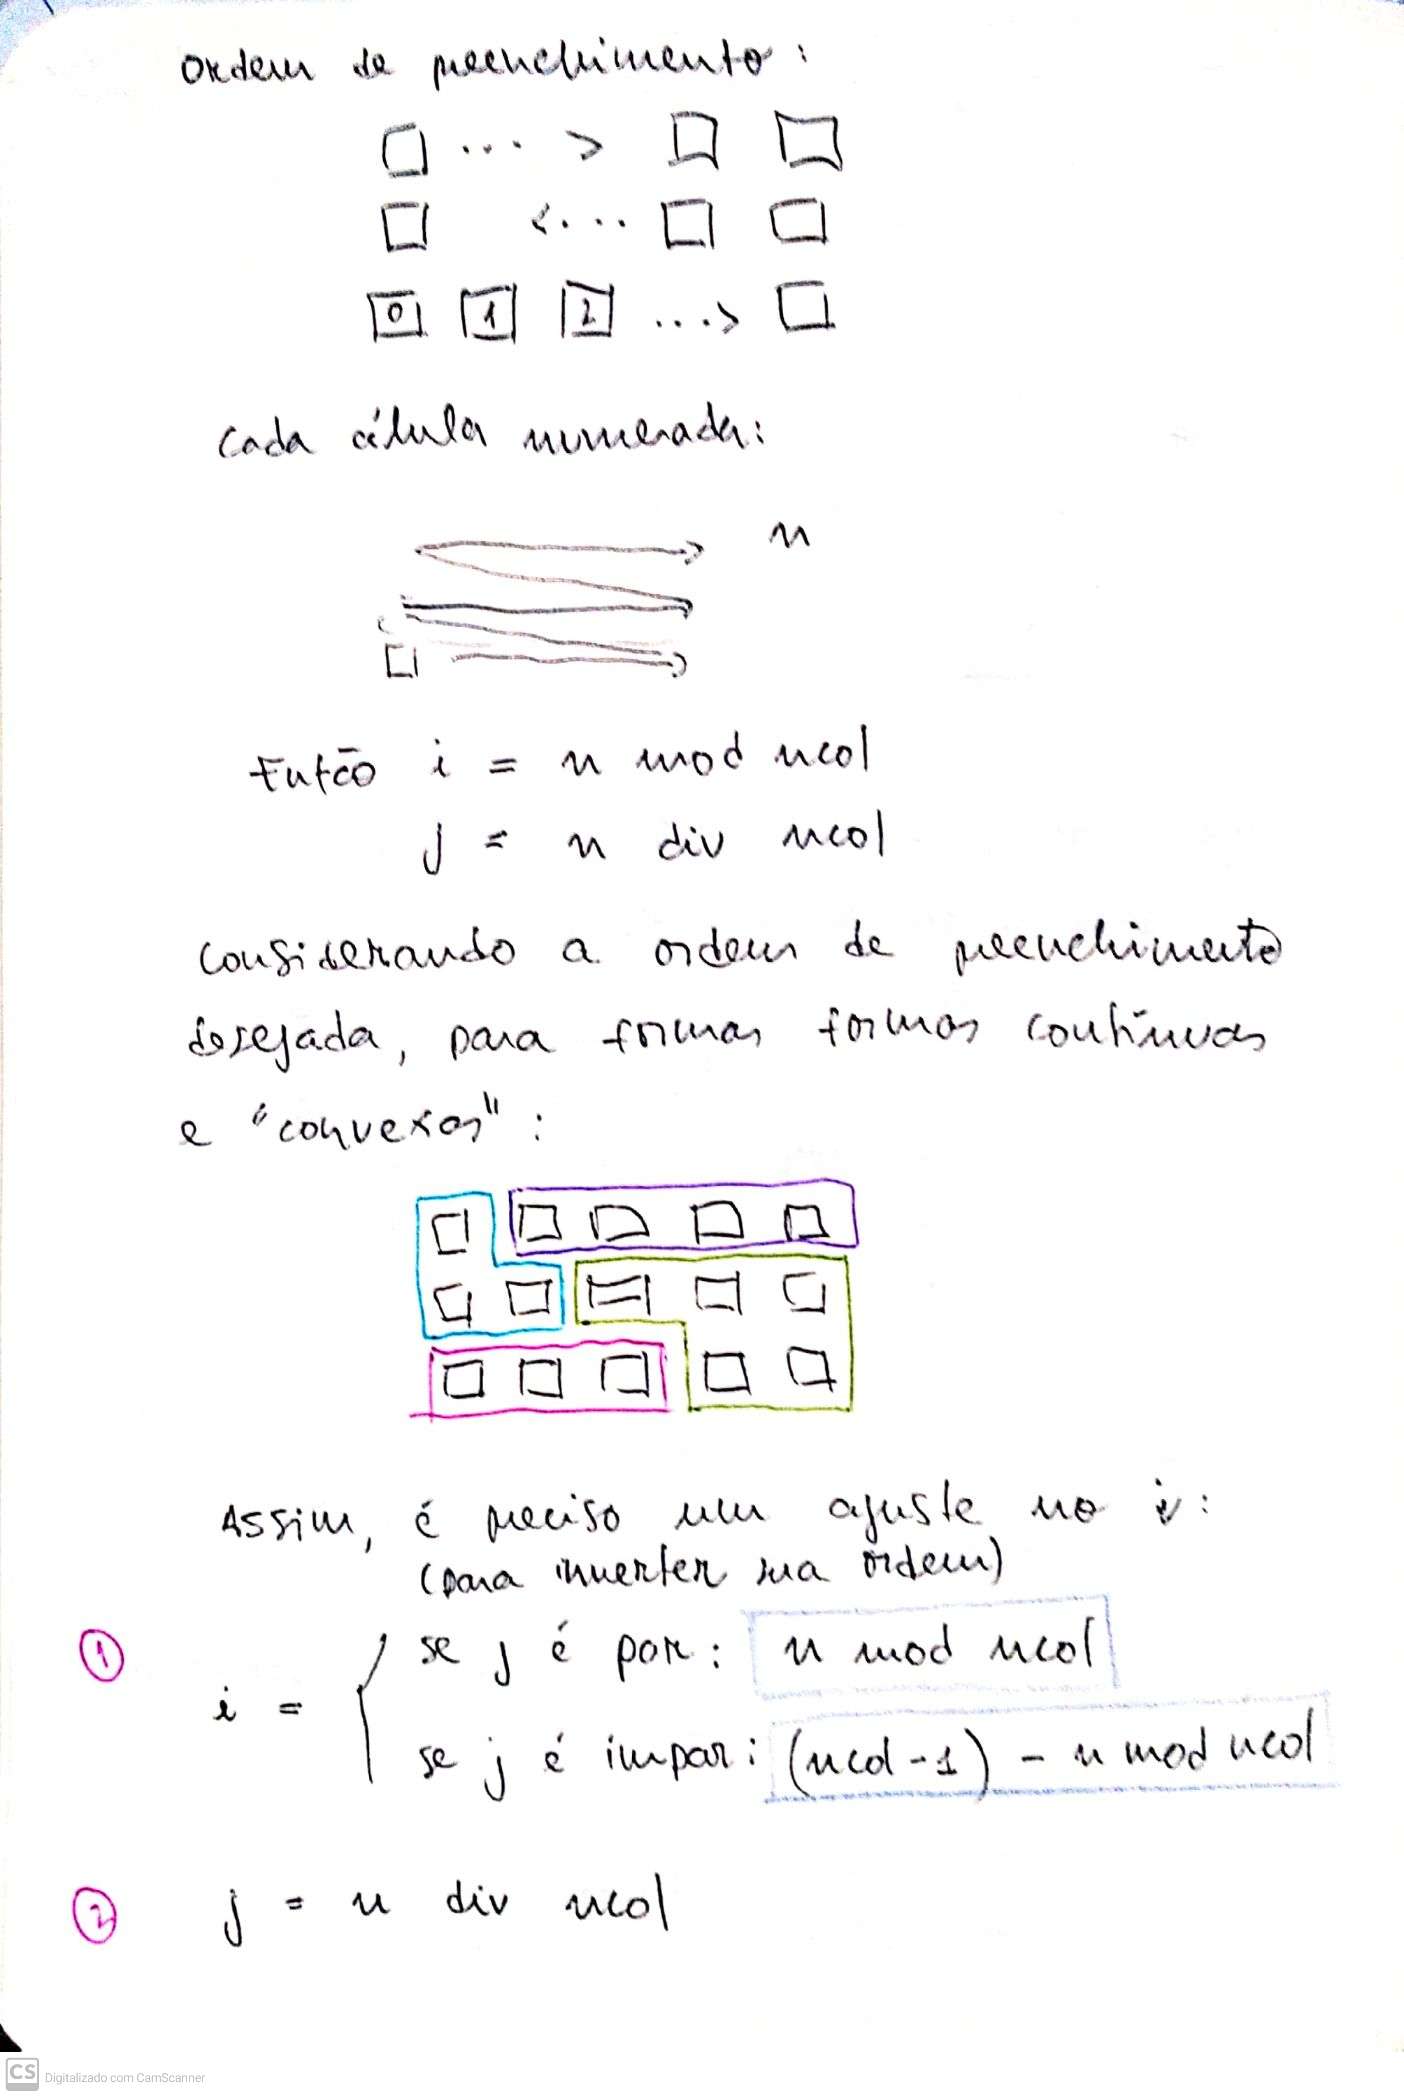 Ordem de preenchimento:
... >
<...
0 1 2 ...>
Cada célula numerada:
n
Então i = n mod ncol
j = n div ncol
Considerando a ordem de preenchimento
desejada, para formas formas contínuas
e "convexas":
Assim, é preciso um ajuste no i:
(para inverter sua ordem)
1 se j é par: n mod ncol
i =
se j é impar: (ncol-1) - n mod ncol
2 j = n div ncol
CS Digitalizado com CamScanner